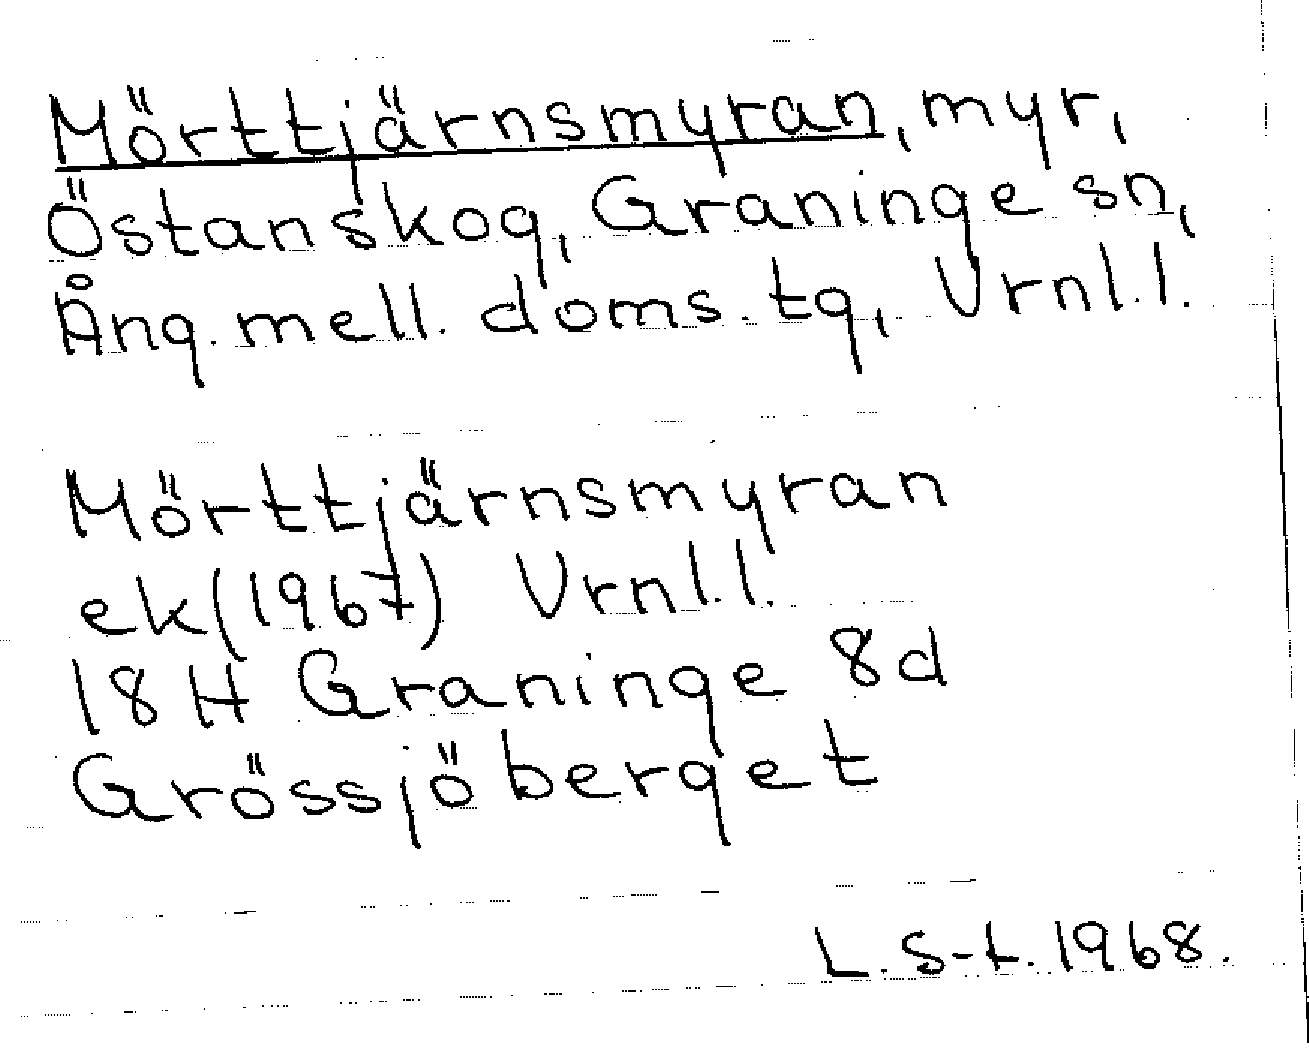 Mörttjärnsmyran, myr,
Östanskog, Graninge sn,
Ång. mell. doms. tg, Vrnl.l.
Mörttjärnsmyran
ek(1967) Vrnl.l.
18H Graninge 8d
Grössjöberget
L. S-t. 1968.